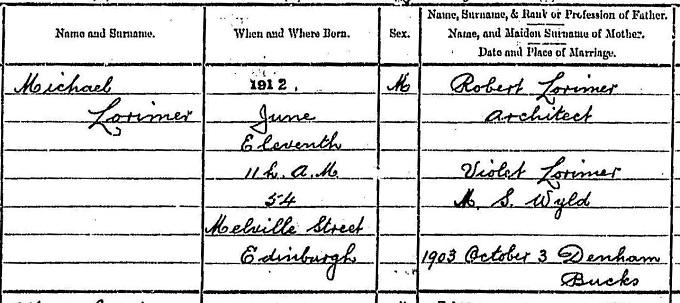 Name and Surname.
When and Where Born.
Sex.
Name, Surname, & Rank or Profession of Father.
Name, and Maiden Surname of Mother.
Date and Place of Marriage.
Michael
Lorimer
1912.
June
Eleventh
11 h. A.M
54
Melville Street
Edinburgh
M
Robert Lorimer
Architect
Violet Lorimer
M. S. Wyld
1903 October 3 Denham
Bucks